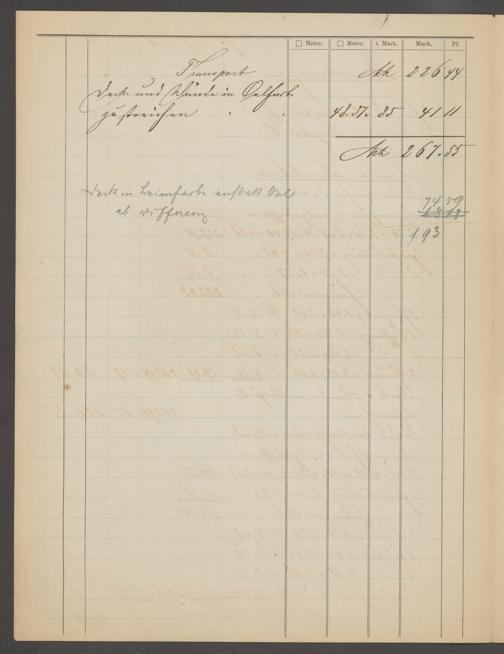 □ Meter. □ Meter. à Mark. Mark. Pf.
Transport Mk 226 44
Decke und Wände in Oelfarbe
zu streichen " " 48.37. 85 41 11
Mk 267.55
Decke in Leimfarbe anstatt Oel
ab Differenz 74 59
193